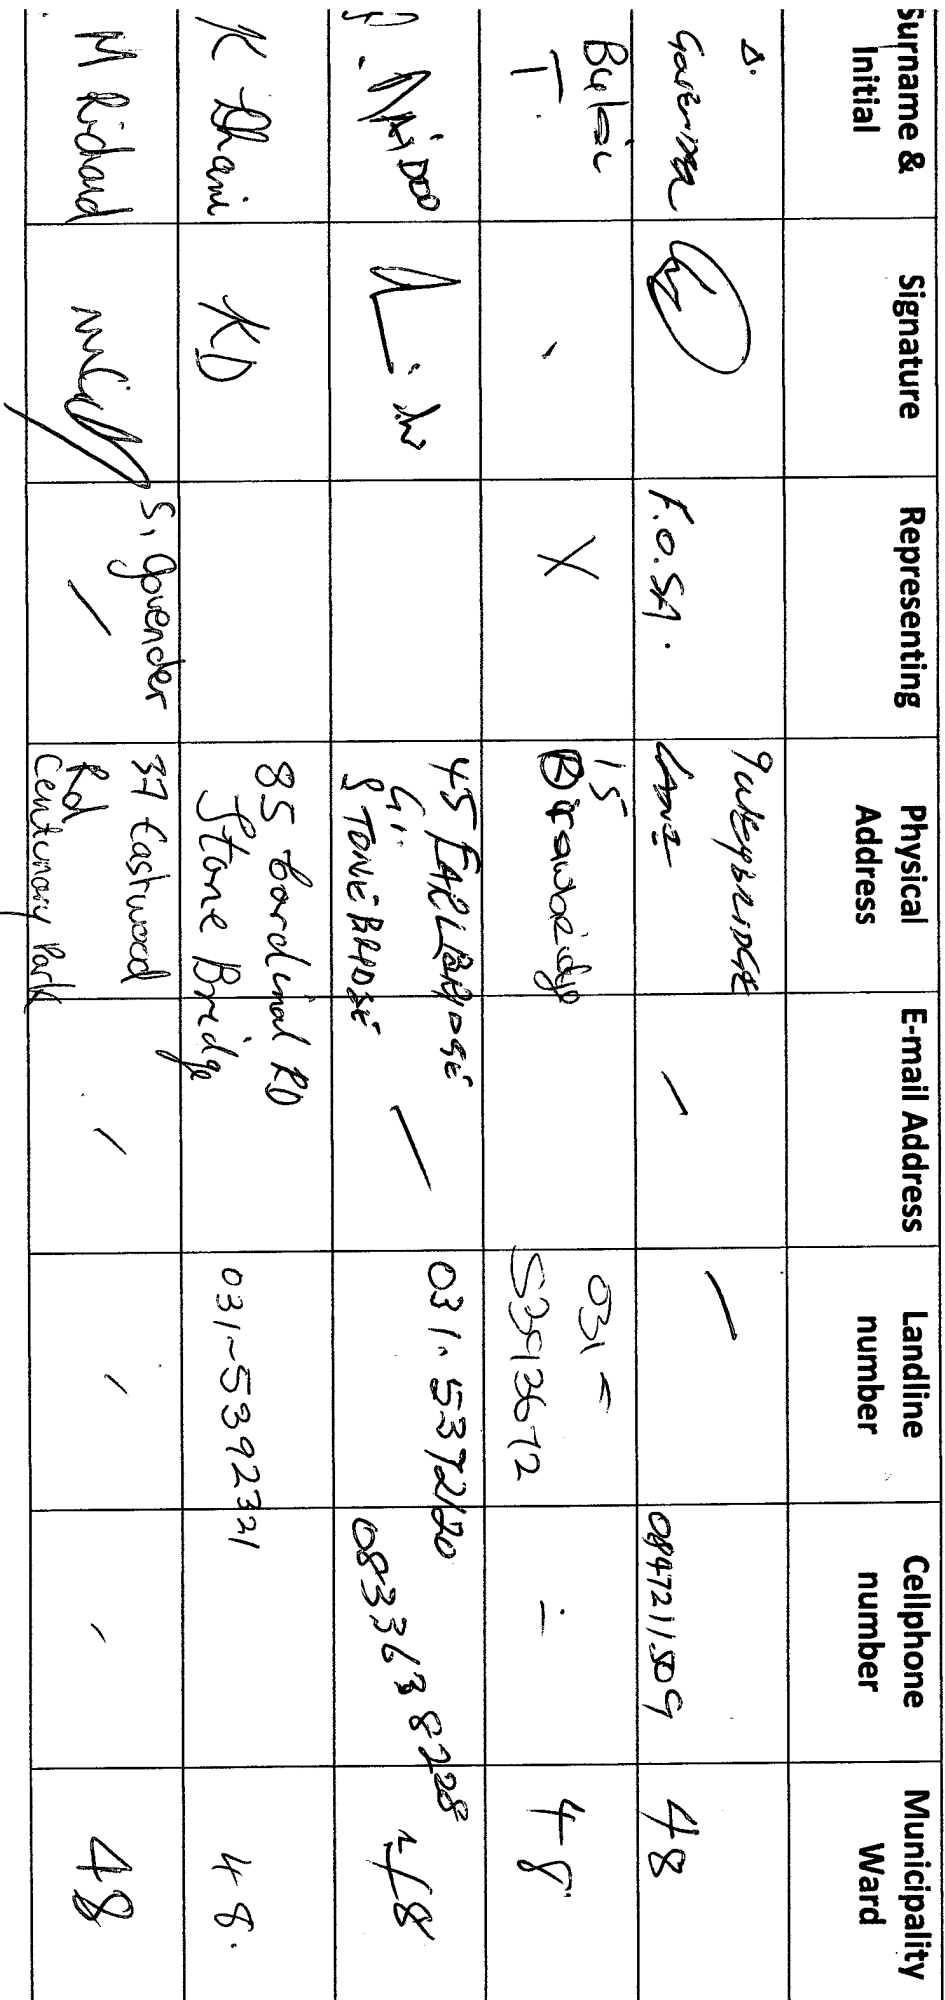 Surname & Initial
Signature
Representing
Physical Address
E-mail Address
Landline number
Cellphone number
Municipality Ward
S.
F.O.SA.
LANE
0847211509
48
T.
X
15
Drawbridge
031 -
5392672
-
48
P. NAIDOO
45 EARLBRIDGE
STONEBRIDGE
031. 5372120
0833638228
48
K Dhani
KD
85 Cardinal RD
Stone Bridge
031-5392321
48.
M Richard
S. Govender
37 Eastwood
Rd
Centenary Park
48